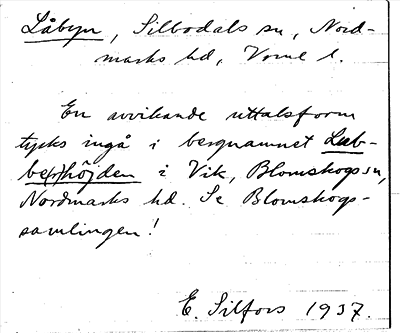 Låbyn, Silbodals sn, Nord-
marks hd, Vrml l.
En avvikande uttalsform
tycks ingå i bergnamnet Lub-
be(r)höjden i Vik, Blomskogs sn,
Nordmarks hd. Se Blomskogs-
samlingen!
E. Silfors 1937.